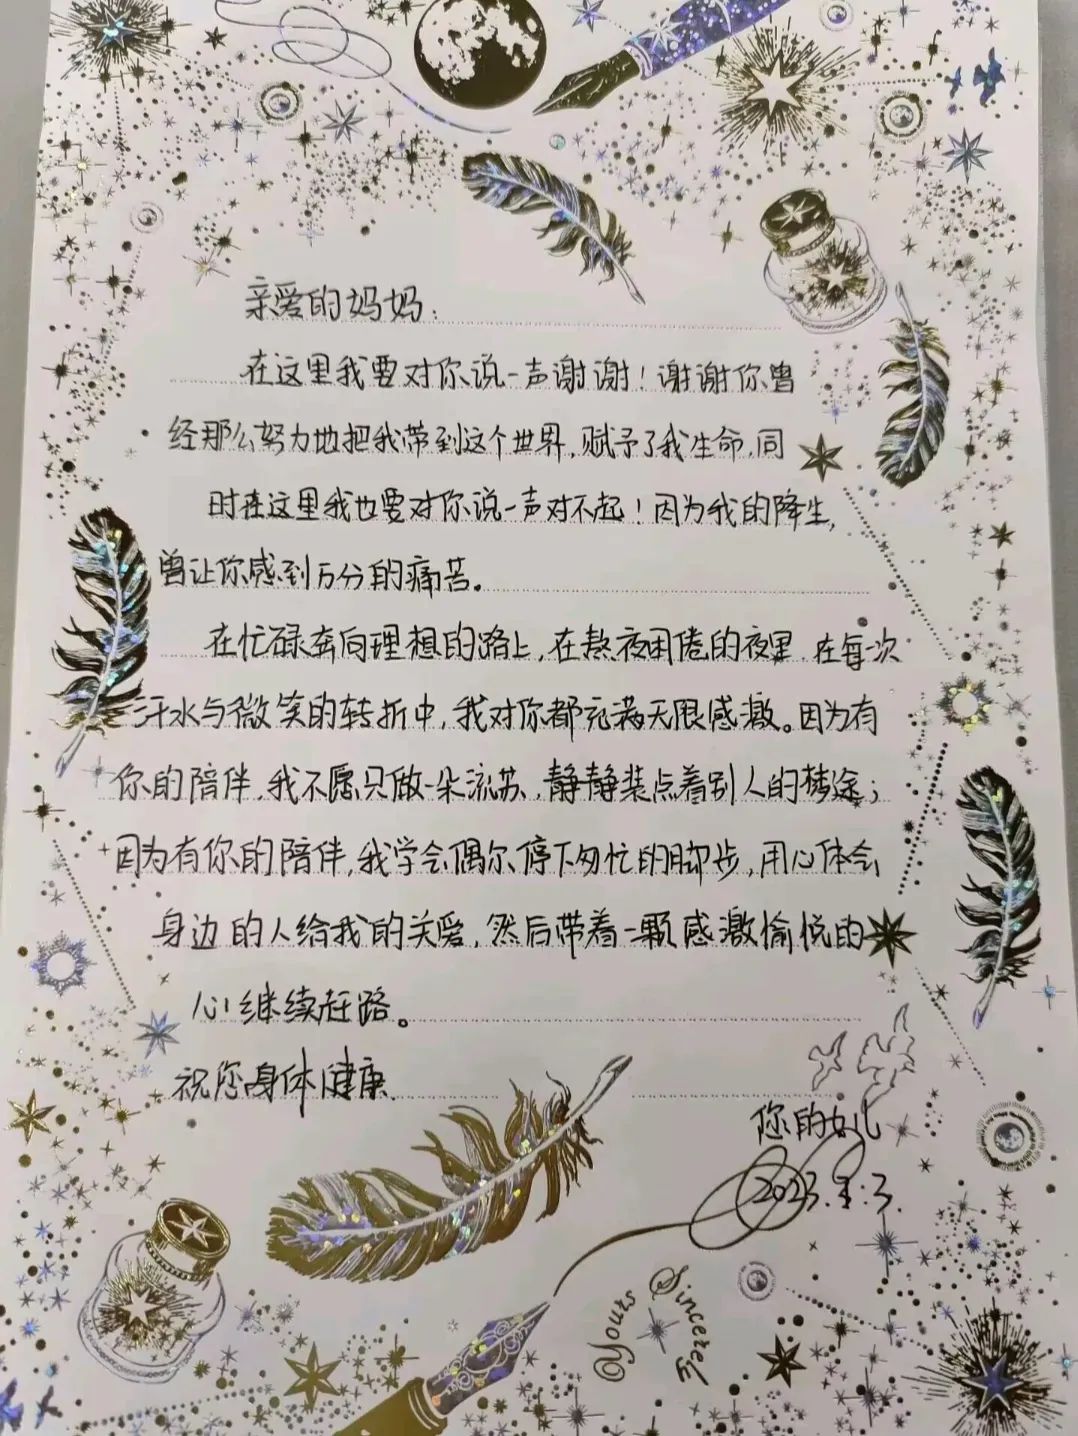 亲爱的妈妈:
在这里我要对你说一声谢谢!谢谢你曾
经那么努力地把我带到这个世界,赋予了我生命,同
时在这里我也要对你说一声对不起!因为我的降生,
曾让你感到万分的痛苦。
在忙碌奔向理想的路上,在熬夜困倦的夜里,在每一次
汗水与微笑的转折中,我对你都充满无限感激。因为有
你的陪伴,我不愿只做一朵流苏,静静装点着别人的梦途;
因为有你的陪伴,我学会偶尔停下匆忙的脚步,用心体会
身边的人给我的关爱,然后带着一颗感激愉悦的
心继续赶路。
祝您身体健康.
你的女儿
2023.8.3.
Yours Sincerely